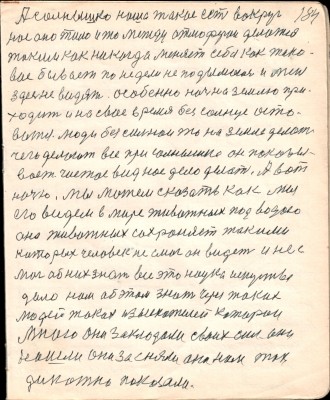 А солнышко наше такое сет вокруг 184
нас оно тило и то между атмофурой делается
таким как никогда меняет себя как тако-
вое бывает по неделе не подымался и тем
здесь не видать. особенно ноч на землю при-
ходит и на свое время без солнце оста-
вать. люди без сильного то на земле делают
чего делают все при солнышко он показы-
вает чистое видное дело делать. А вот
ночю, мы можем сказать как мы
его видем в мире животных под водою
она животных сохроняет такими
которых человек не смог он видет и не с
мог об них знат все это наука искуства
дило нам об этом знат через таких
людей таких изыскателей которои
много они закладали своих сил они
нашли они засняли она нам так
дикатно показали.